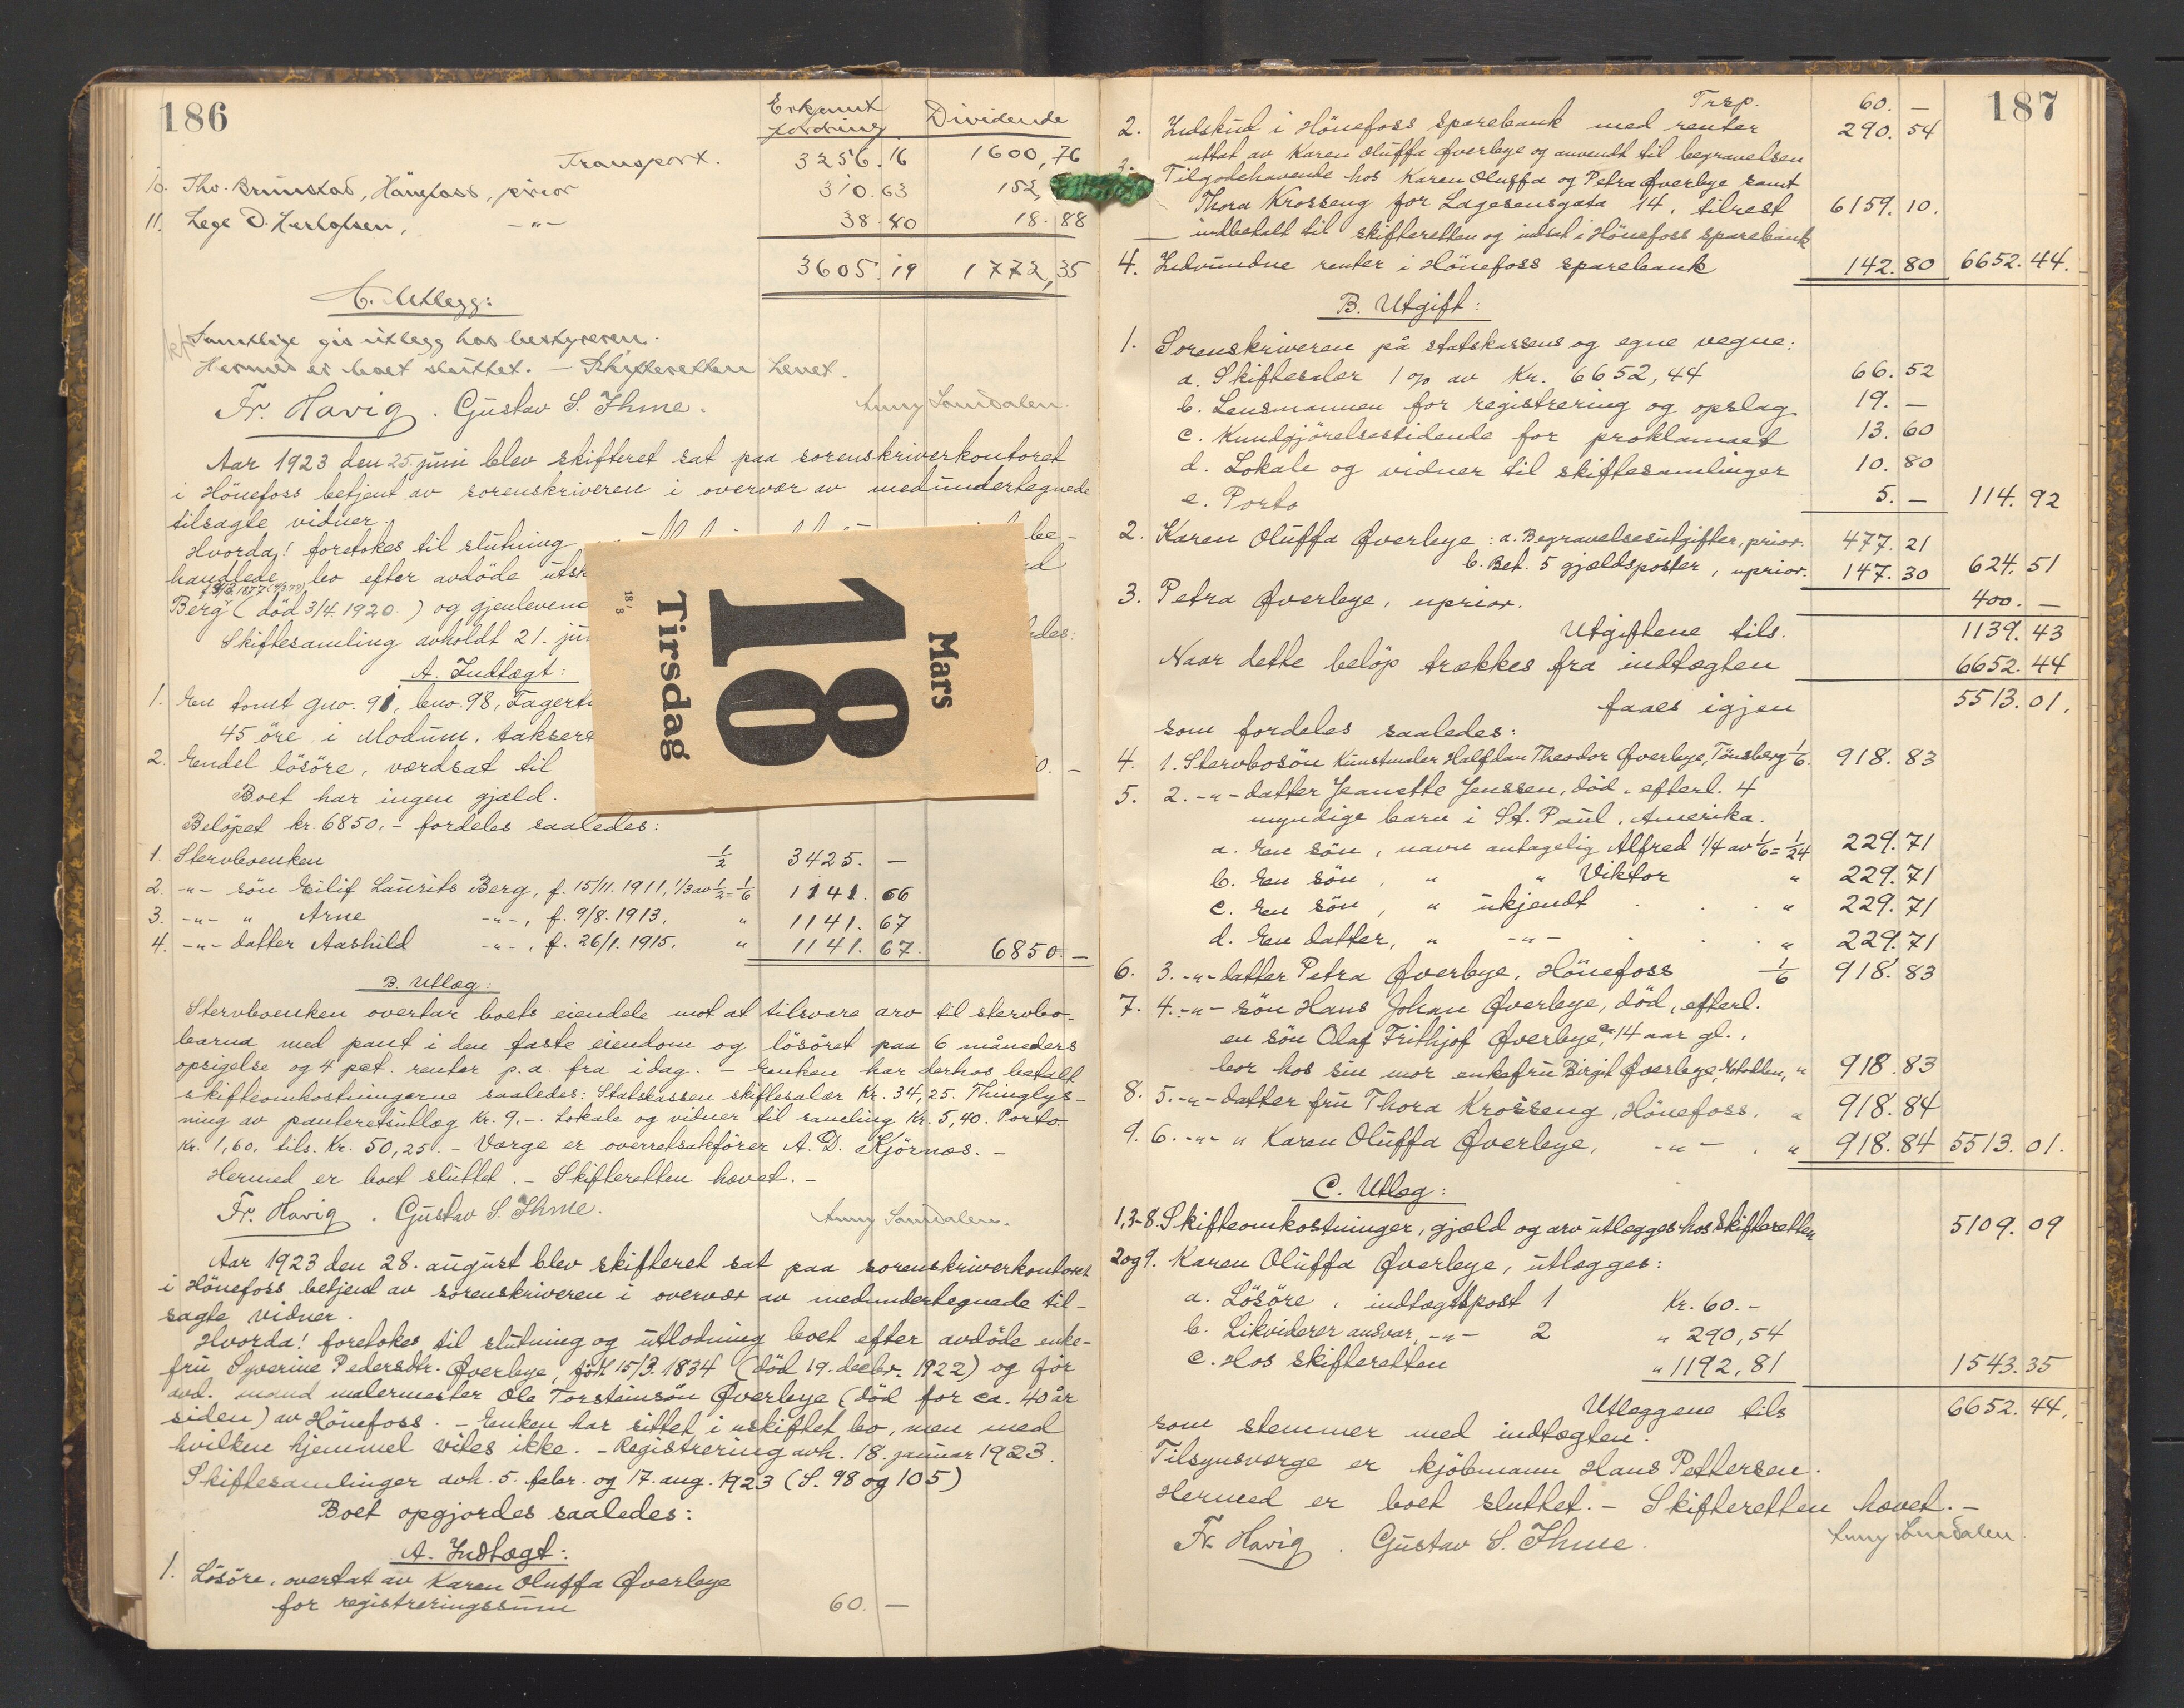 186
Erkjent fordring Dividende
Transport. 3256.16 1600,76
10. Thv. Brunstad, Hönefoss, prior 310.63 152,
11. Lege D. Herlofsen, -"- 38.40 18.88
3605.19 1772,35
C. Utlegg:
Samtlige gis utlegg hos bestyreren.
Hermed er boet sluttet. — Skifteretten hevet.
Fr. Havig. Gustav S. Ihme. Anny Samdalen.
Aar 1923 den 25. juni blev skifteret sat paa sorenskriverkontoret
i Hönefoss betjent av sorenskriveren i overvær av medundertegnede
tilsagte vidner.
Hvorda! foretokes til slutning be-
handlede bo efter avdöde
Berg (död 3/4.1920.) og
Skiftesamling avholdt 21.
A. Indtægt:
1. En tomt gno. 91, bno. 98,
45 öre i Modum,
2. Endel lösöre, værdsat til 0. —
Boet har ingen gjæld.
Belöpet kr. 6850,- fordeles saaledes:
1. Stervboenken 1/2 3425. —
2. -"- sön Eilif Laurits Berg, f. 15/11.1911, 1/3 av 1/2 = 1/6 1141.66
3. -"- " Arne -"-, f. 9/8.1913. " 1141.67
4. -"- datter Aashild -"-, f. 26/1.1915. " 1141.67. 6850. —
B. Utlæg:
Stervboenken overtar boets eiendele mot at tilsvare arv til stervbo-
barna med pant i den faste eiendom og lösöret paa 6 måneders
opsigelse og 4 pct. renter p.a. fra idag. — Enken har derhos betalt
skifteomkostningerne saaledes: Statskassen skiftesalær kr. 34,25. Thinglys-
ning av panteretsutlæg kr. 9.-. Lokale og vidner til samling kr. 5,40. Porto
kr. 1,60, tils. kr. 50,25. — Værge er overretssakförer A. D. Kjörnæs. —
Hermed er boet sluttet. — Skifteretten hævet. —
Fr. Havig. Gustav S. Ihme. Anny Samdalen.
Aar 1923 den 28. august blev skifteret sat paa sorenskriverkontoret
i Hönefoss betjent av sorenskriveren i overvær av medundertegnede til-
sagte vidner.
Hvorda! foretokes til slutning og utlodning boet efter avdöde enke-
fru Syverine Pedersdtr. Øverbye, född 15/3.1834 (död 19. decbr. 1922) og för
avd. mand malermester Ole Torsteinsön Øverbye (död for ca. 40 år
siden) av Hönefoss. — Enken har sittet i uskiftet bo, men med
hvilken hjemmel vites ikke. — Registrering avh. 18. januar 1923.
Skiftesamlinger avh. 5. febr. og 17. aug. 1923 (S. 98 og 105)
Boet opgjordes saaledes:
A. Indtægt:
1. Lösöre, overtat av Karen Oluffa Øverbye
for registreringssum 60. —
Mars
18
Tirsdag
18/3
187
Trsp. 60. —
2. Indskud i Hönefoss sparebank med renter 290.54
uttat av Karen Oluffa Øverbye og anvendt til begravelsen
3. Tilgodehavende hos Karen Oluffa og Petra Øverbye samt
Thora Krosseng for Lagesensgata 14, tilrest 6159.10.
— indbetalt til skifteretten og indsat i Hönefoss sparebank
4. Indvundne renter i Hönefoss sparebank 142.80 6652.44.
B. Utgift:
1. Sorenskriveren på statskassens og egne vegne:
a. Skiftesalær 1% av kr. 6652,44 66.52
b. Lensmannen for registrering og opslag 19. —
c. Kundgjörelsestidende for proklamaet 13.60
d. Lokale og vidner til skiftesamlinger 10.80
e. Porto 5. — 114.92
2. Karen Oluffa Øverbye: a. Begravelsesutgifter, prior. 477.21
b. Bet. 5 gjældsposter, uprior. 147.30 624.51
3. Petra Øverbye, uprior. 400. —
Utgiftene tils. 1139.43
Naar dette belöp trækkes fra indtægten 6652.44
faaes igjen 5513.01.
som fordeles saaledes:
4. 1. Stervbosön Kunstmaler Halfdan Theodor Øverbye, Tönsberg 1/6. 918.83
5. 2. -"- datter Jeanette Jenssen, död, efterl. 4
myndige barn i St. Paul, Amerika.
a. En sön, navn antagelig Alfred 1/4 av 1/6 = 1/24 229.71
b. En sön, " " Viktor " 229.71
c. En sön, " ukjendt . . . " 229.71
d. En datter, " -"- . . . " 229.71
6. 3. -"- datter Petra Øverbye, Hönefoss 1/6 918.83
7. 4. -"- sön Hans Johan Øverbye, död, efterl.
en sön Olaf Frithjof Øverbye, ca. 14 aar gl.,
bor hos sin mor enkefru Birgit Øverbye, Notodden, " 918.83
8. 5. -"- datter fru Thora Krosseng, Hönefoss, " 918.84
9. 6. -"- " Karen Oluffa Øverbye, -"- , " 918.84 5513.01.
C. Utlæg:
1,3-8. Skifteomkostninger, gjæld og arv utlægges hos Skifteretten 5109.09
2 og 9. Karen Oluffa Øverbye, utlægges:
a. Lösöre, indtægtspost 1 Kr. 60.-
b. Likviderer ansvar, -"- 2 " 290,54
c. Hos skifteretten " 1192,81 1543.35
Utlæggene tils 6652.44.
som stemmer med indtægten.
Tilsynsværge er kjöbmann Hans Pettersen.
Hermed er boet sluttet. — Skifteretten hævet. —
Fr. Havig. Gustav S. Ihme. Anny Samdalen.